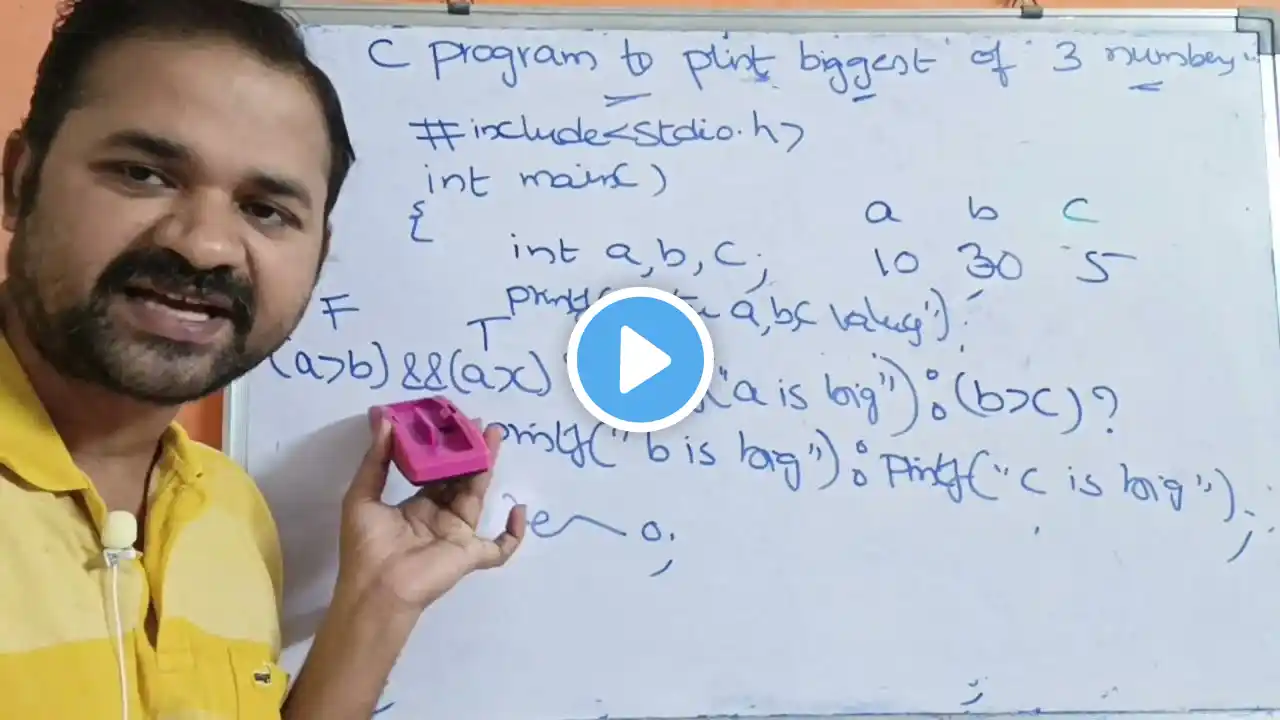 C program to print biggest of 3 numbers
#include<stdio.h>
int main()
{
a b c
int a,b,c;
10 30 5
a,b,c values");
F T
(a>b) &&(a>c) ("a is big") : (b>c) ?
printf("b is big") : printf("c is big");
0;